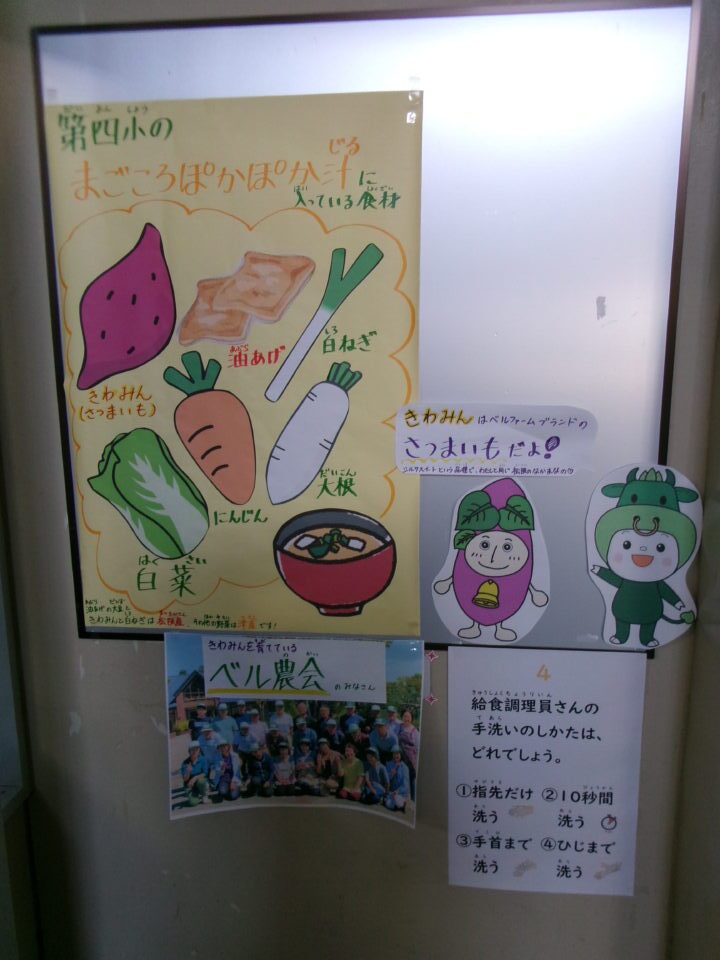 第四小の
まごころぽかぽか汁に
入っている食材
きわみん
(さつまいも)
油あげ
白ねぎ
にんじん
大根
白菜
油あげの大豆と
きわみんと白ねぎは松阪産 その他の野菜は津産です!
きわみんはベルファームブランドの
さつまいもだよ!
シルクスイートという品種で、わたしと同じ松阪のなかまなの
きわみんを育てている
ベル農会のみなさん
4
給食調理員さんの
手洗いのしかたは、
どれでしょう。
①指先だけ ②10秒間
洗う 洗う
③手首まで ④ひじまで
洗う 洗う